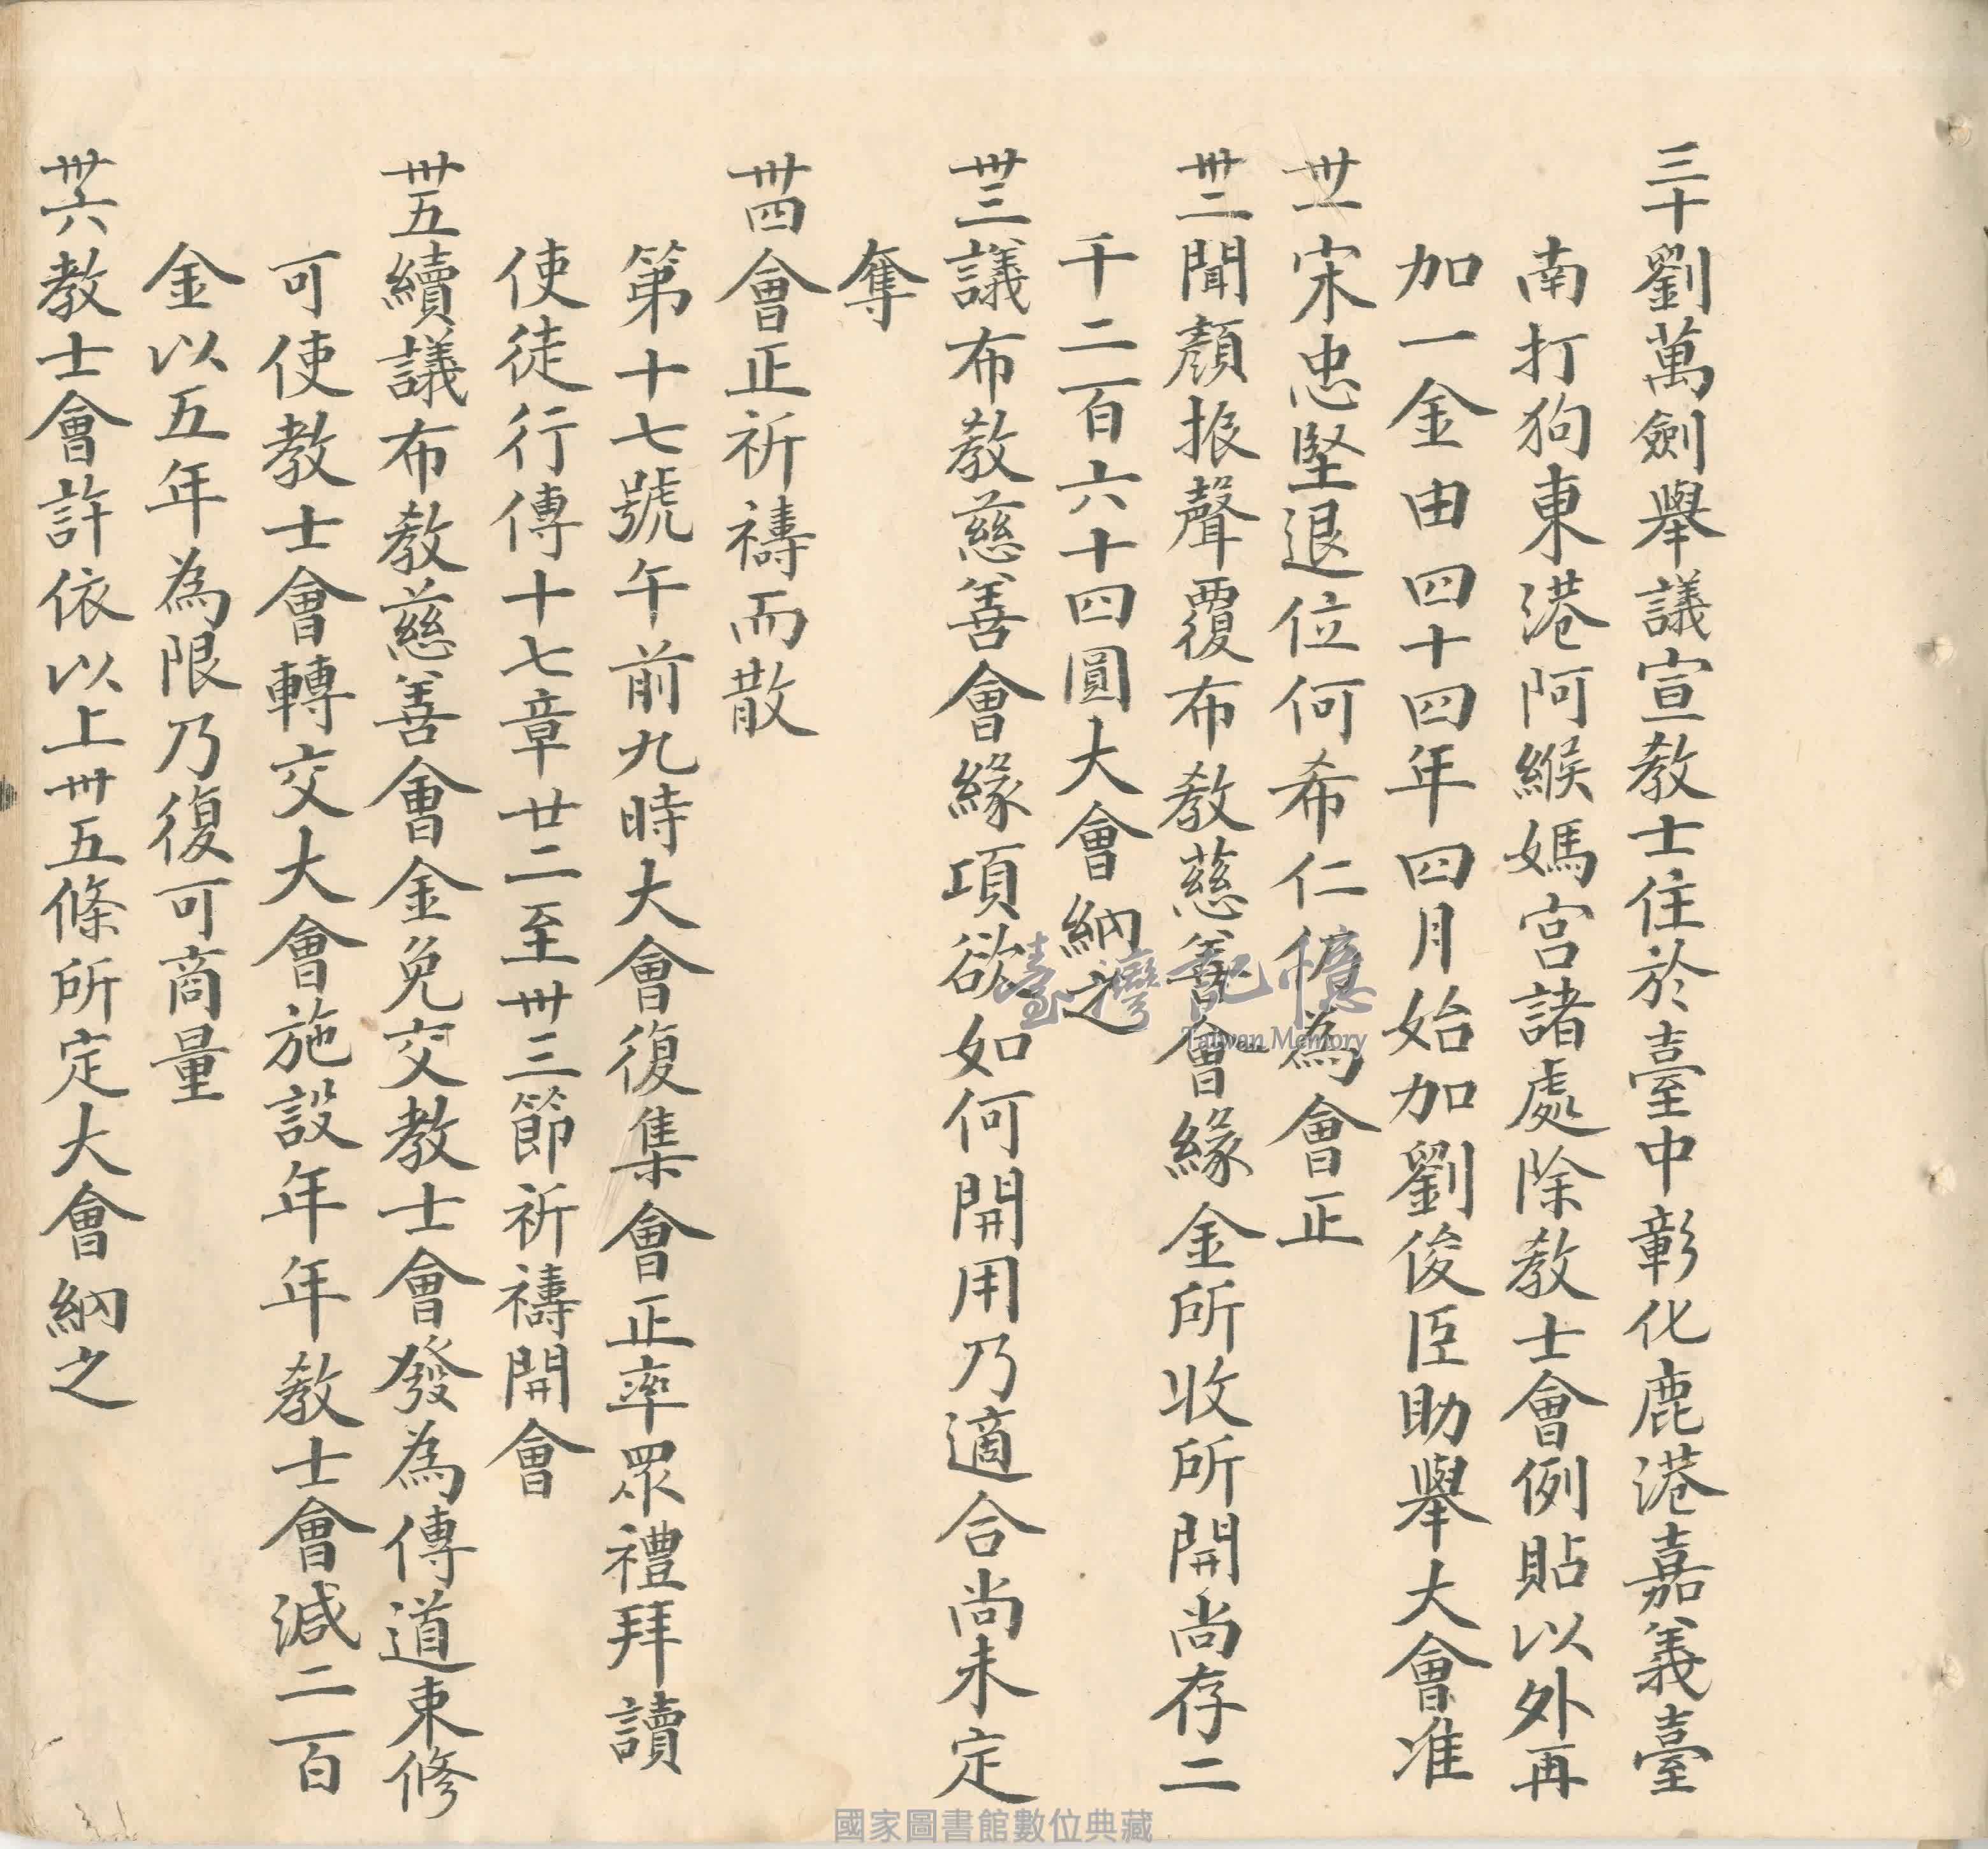 三十劉萬劍舉議宣教士住於臺中彰化鹿港嘉義臺
南打狗東港阿緱媽宮諸處除教士會例貼以外再
加一金由四十四年四月始加劉俊臣助舉大會准
卅一宋忠堅退位何希仁 為會正
卅二聞顏振聲覆布教慈善會緣金所收所開尚存二
千二百六十四圓大會納之
卅三議布教慈善會緣項欲如何開用乃適合尚未定
奪
卅四會正祈禱而散
第十七號午前九時大會復集會正率眾禮拜讀
使徒行傳十七章廿二至卅三節祈禱開會
卅五續議布教慈善會金免交教士會發為傳道束修
可使教士會轉交大會施設年年教士會減二百
金以五年為限乃復可商量
卅六教士會許依以上卅五條所定大會納之
臺灣記憶
Taiwan Memory
國家圖書館數位典藏